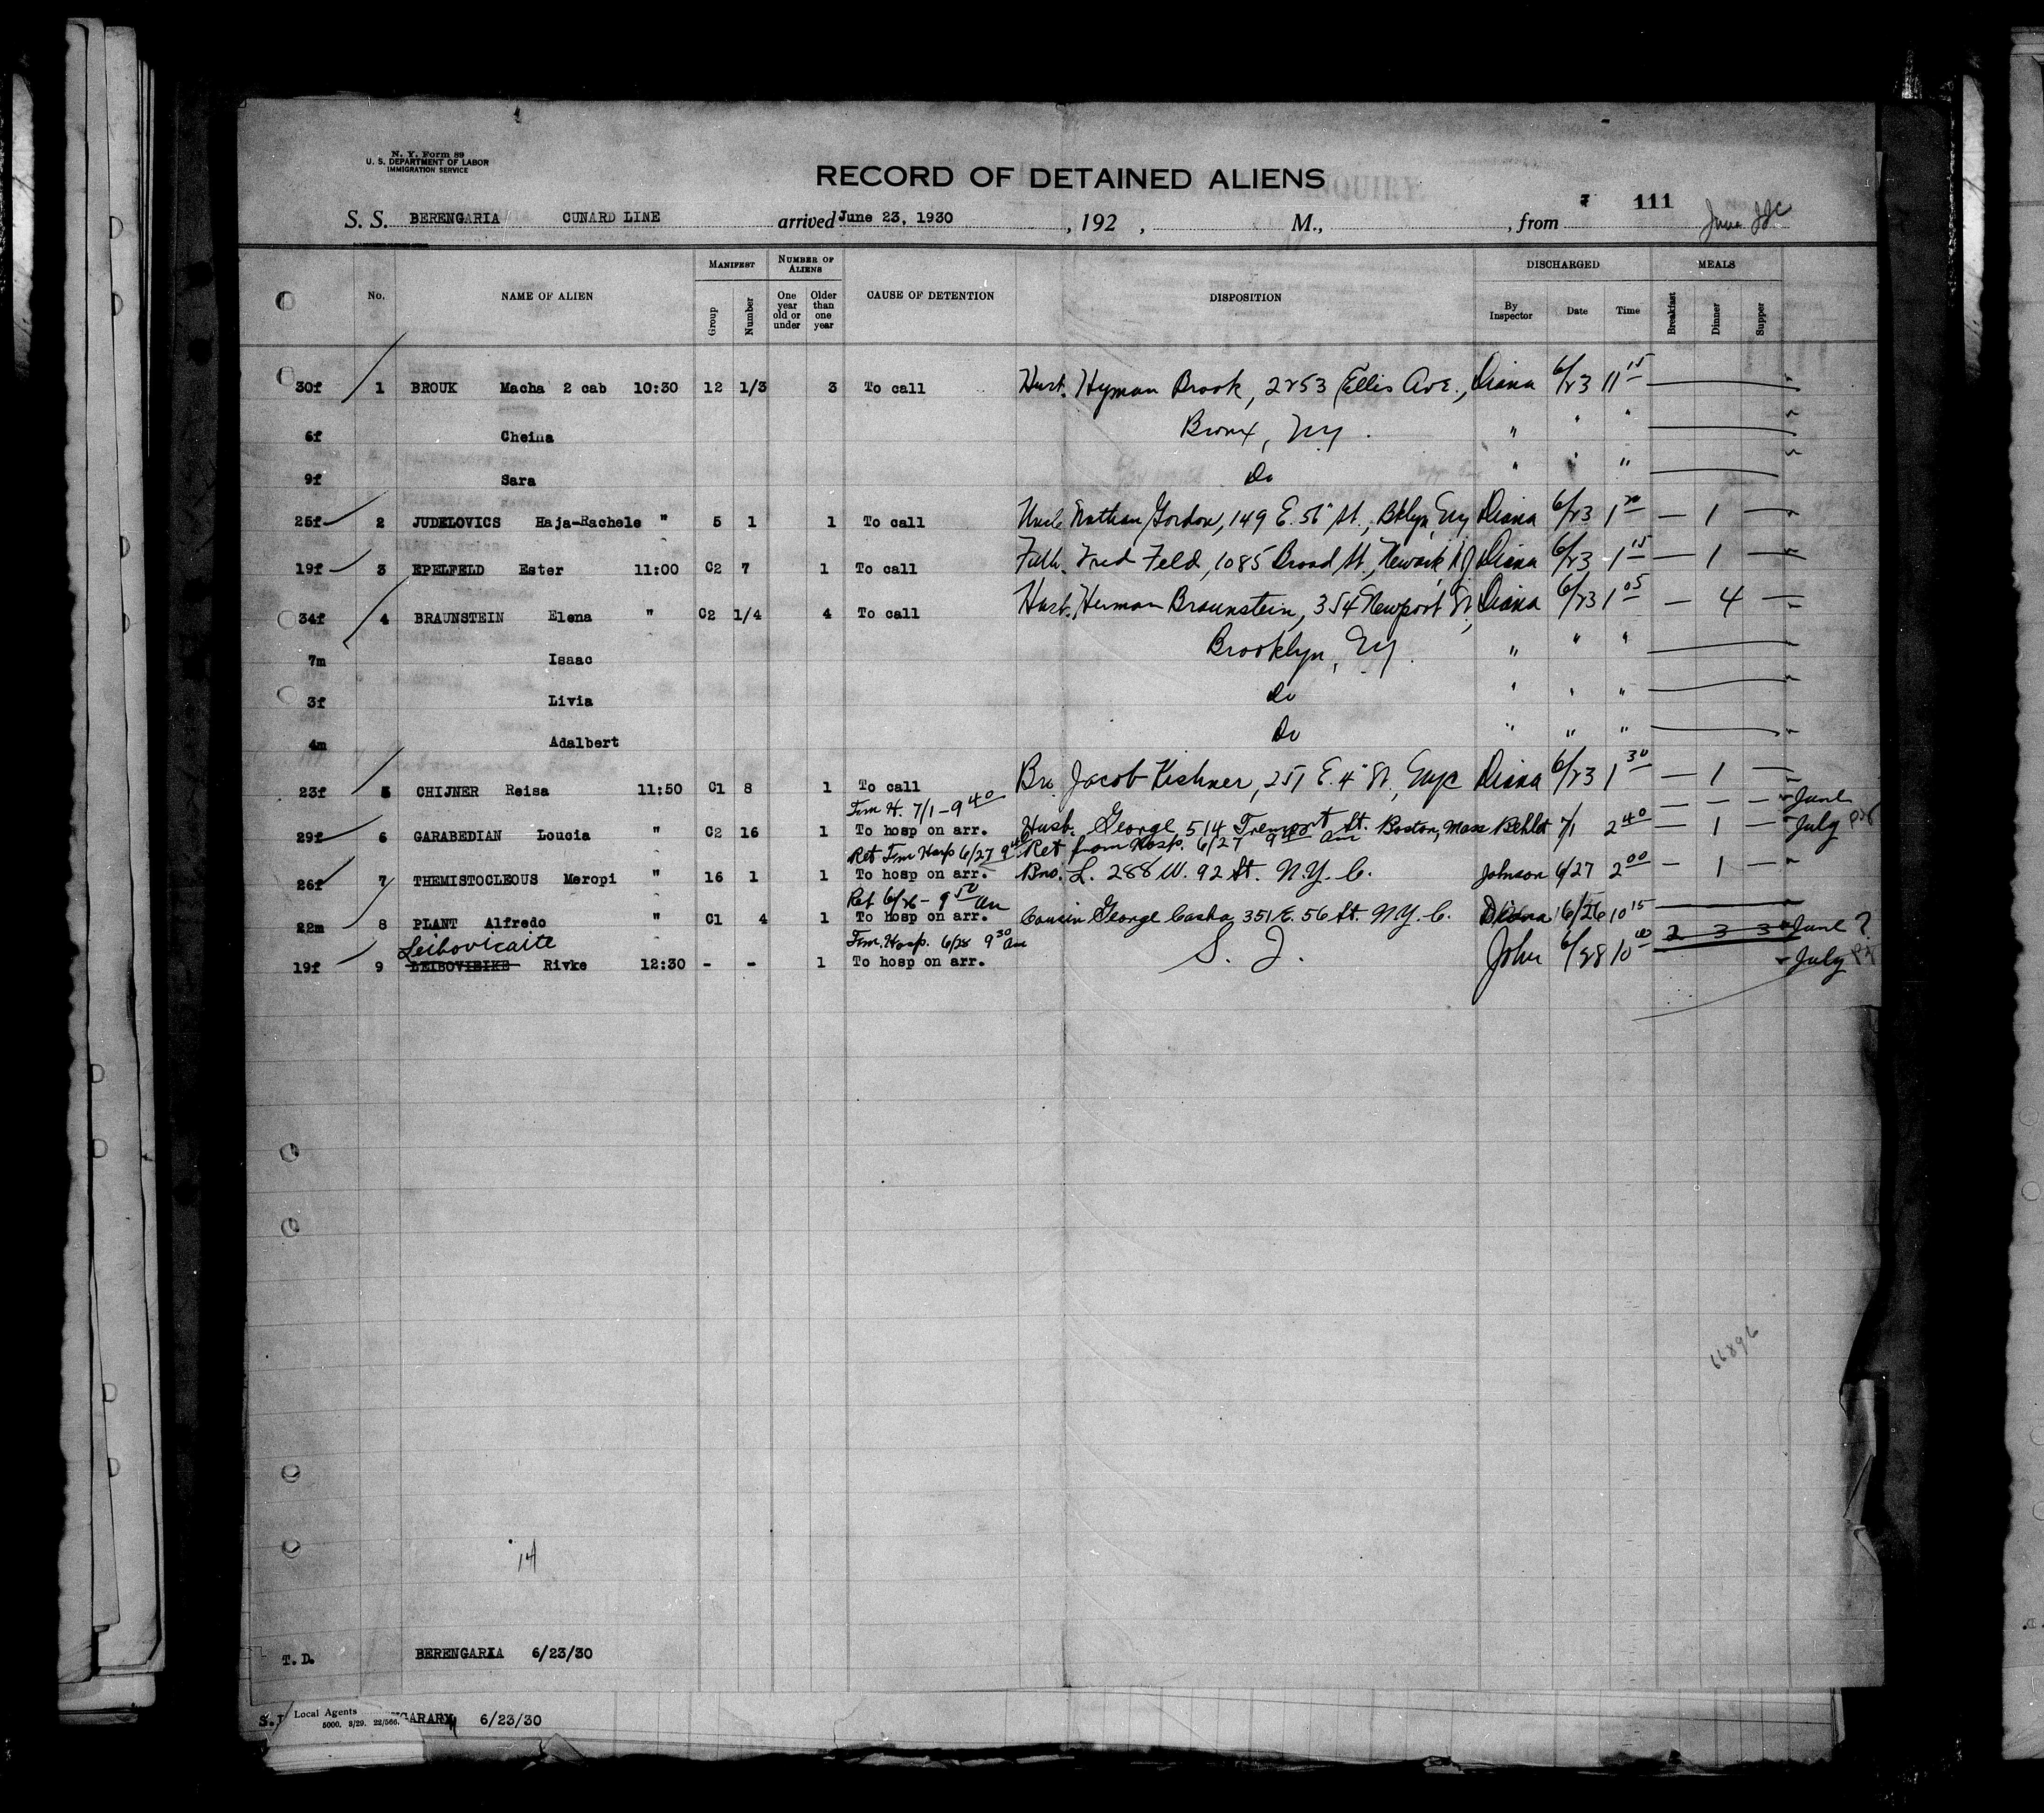 N. Y. Form 89
U. S. DEPARTMENT OF LABOR
IMMIGRATION SERVICE
RECORD OF DETAINED ALIENS
111
S. S. BERENGARIA CUNARD LINE arrived June 23, 1930 , 192 , M., , from June
No. NAME OF ALIEN MANIFEST Group Number NUMBER OF ALIENS One year old or under Older than one year CAUSE OF DETENTION DISPOSITION DISCHARGED By Inspector Date Time MEALS Breakfast Dinner Supper
30f 1 BROUK Macha 2 cab 10:30 12 1/3 3 To call Husb. Hyman Brook, 2253 Ellis Ave., Diana 6/23 11 15
6f Cheina Bronx, NY. " " "
9f Sara Do " " "
25f 2 JUDELOVICS Haja-Rachele " 5 1 1 To call Uncle Nathan Gordon, 149 E. 56" St., Bklyn, NY Diana 6/23 1 20 — 1 —
19f 3 EPELFELD Ester 11:00 C2 7 1 To call Fath. Fred Feld, 1085 Broad St., Newark NJ Diana 6/23 1 15 — 1 —
34f 4 BRAUNSTEIN Elena " C2 1/4 4 To call Husb. Herman Braunstein, 354 Newport St, Diana 6/23 1 05 — 4 —
7m Isaac Brooklyn, NY. " " "
3f Livia Do " " "
4m Adalbert Do " " "
23f 5 CHIJNER Reisa 11:50 C1 8 1 To call Bro. Jacob Kishner, 251 E. 4" St., NYC Diana 6/23 1 30 — 1 —
Frm H. 7/1 - 9 40 — — — June
29f 6 GARABEDIAN Loucia " C2 16 1 To hosp on arr. Husb. George, 514 Tremont St. Boston, Mass 7/1 2 40 — 1 — July
Ret Frm Hosp 6/27 9 40 Ret from Hosp. 6/27 9 40 am
26f 7 THEMISTOCLEOUS Meropi " 16 1 1 To hosp on arr. Bro. L. 288 W. 92 St. N.Y.C. Johnson 6/27 2 00 — 1 —
Ret 6/26 - 9 50 am
22m 8 PLANT Alfredo " C1 4 1 To hosp on arr. Cousin George Casha, 351 E. 56 St. N.Y.C. Diana 6/26 10 15
Leibovicaite Frm. Hosp. 6/28 9 30 am 2 3 3 June ?
19f 9 LEIBOVIBIKE Rivke 12:30 - - 1 To hosp on arr. S. I. John 6/28 10 00 July
16896
14
T. D. BERENGARIA 6/23/30
S.I 6/23/30
Local Agents
5000. 8/29. 22/566.